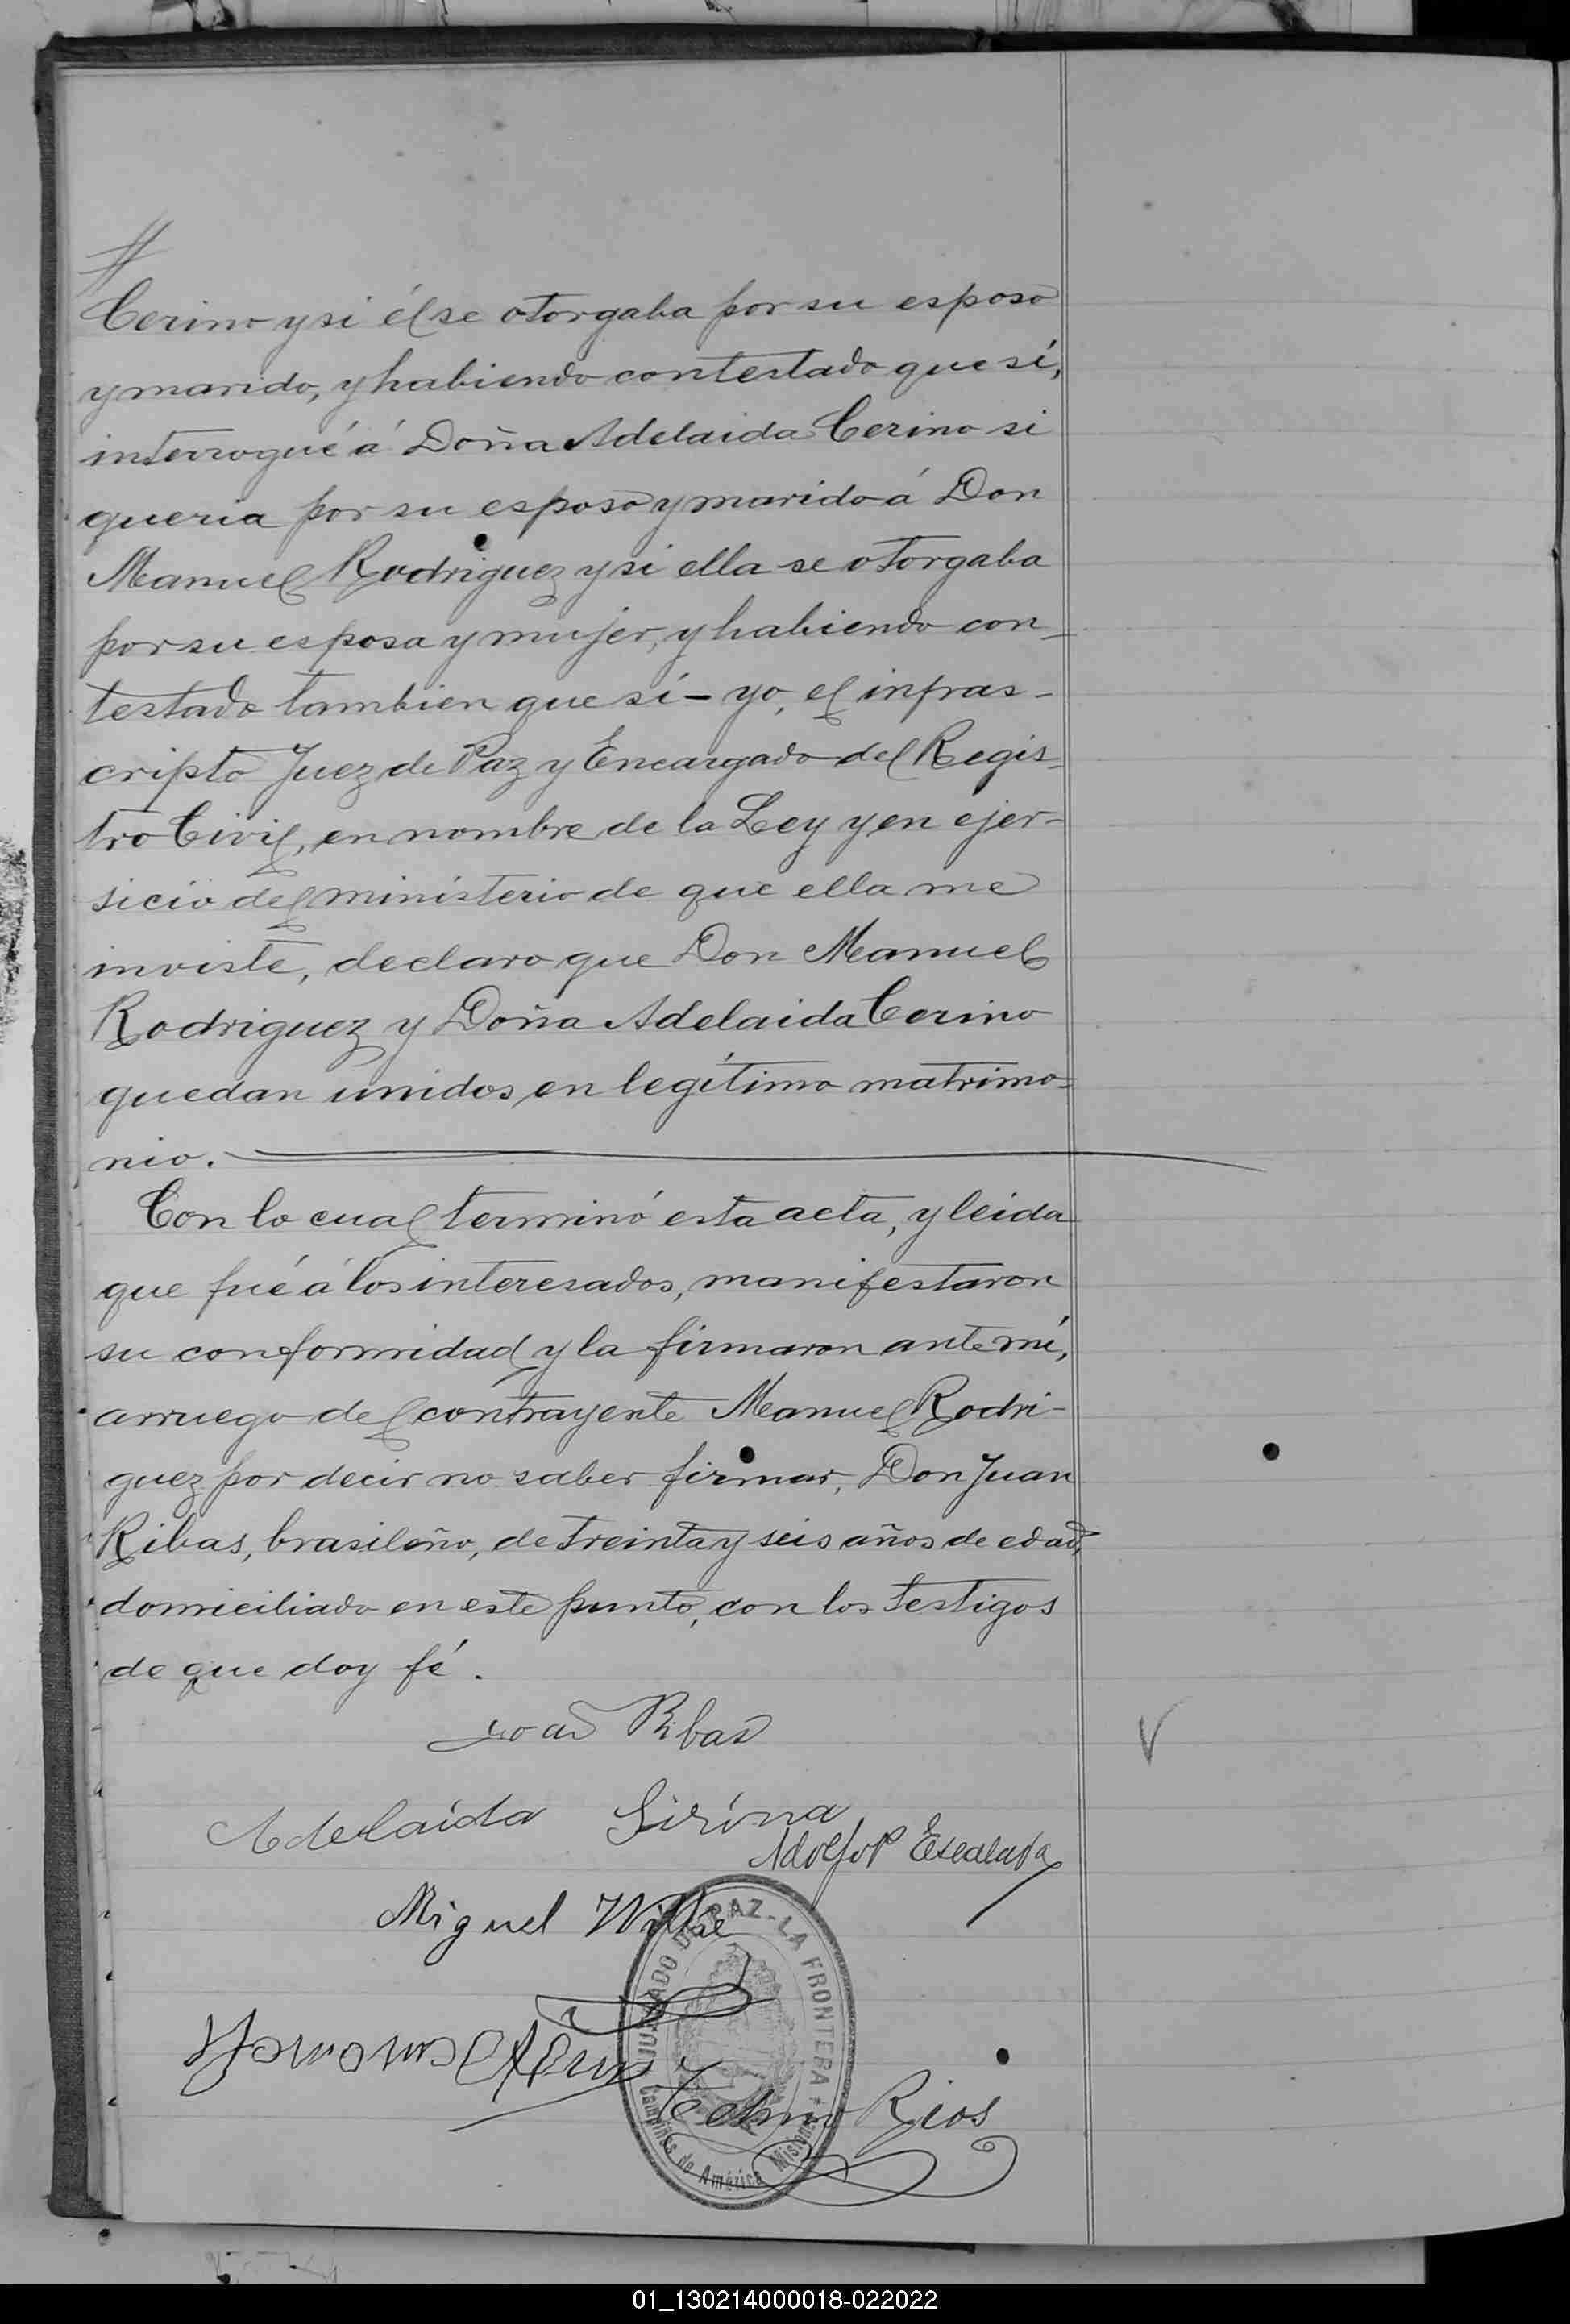 //
Cerino y si él se otorgaba por su esposo
y marido, y habiendo contestado que sí,
interrogué á Doña Adelaida Cerino si
queria por su esposo y marido á Don
Manuel Rodriguez y si ella se otorgaba
por su esposa y mujer, y habiendo con-
testado tambien que sí - yo, el infras-
cripto Juez de Paz y Encargado del Regis-
tro Civil, en nombre de la Ley y en ejer-
sicio del ministerio de que ella me
inviste, declaro que Don Manuel
Rodriguez y Doña Adelaida Cerino
quedan unidos en legítimo matrimo-
nio.
Con lo cual terminó esta acta, y leida
que fué á los interesados, manifestaron
su conformidad y la firmaron ante mí,
arruego del contrayente Manuel Rodri-
guez por decir no saber firmar, Don Juan
Ribas, brasileño, de treinta y seis años de edad,
domiciliado en este punto, con los testigos
de que doy fé.
João Ribas
Adelaida Sirina
Adolfo P Escalada
Miguel Wilke
Telmo Rios
JUZGADO DE PAZ - LA FRONTERA
Campiñas de América Misiones
01_130214000018-022022